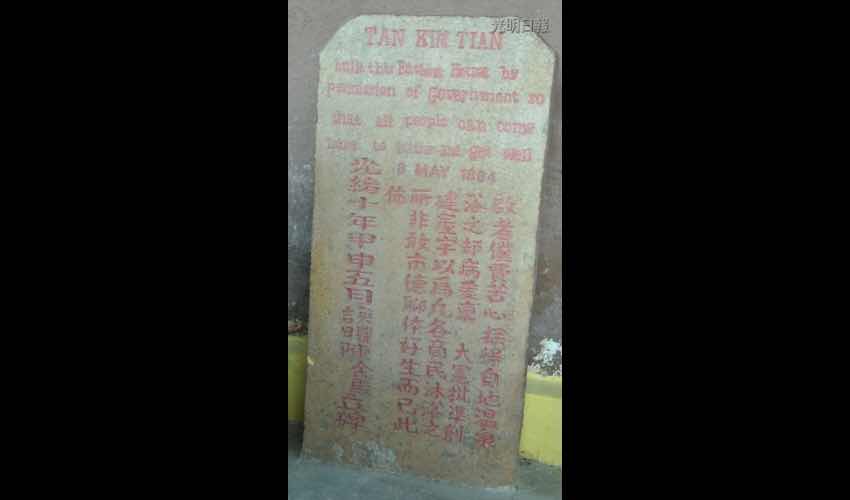 光明日報
TAN KIM TIAN
built this Bathing House by
permission of Government so
that all people can come
here to bathe and get well
8 MAY 1884
啟者僅費苦心採得自地溫泉
落之部病憂稟 大憲批準創
建屋宇以為凡各商民沐浴之
所非敢市德聊体好生而已此
佈
光緒十年甲申五月
吉日陳金殿立碑